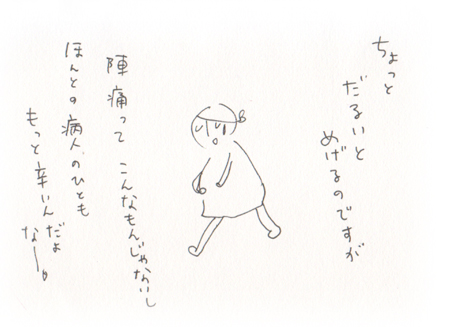 ちょっと
だるいと
めげるのですが
陣痛って こんなもんじゃないし
ほんとの病人のひとも
もっと辛いんだよ
なー